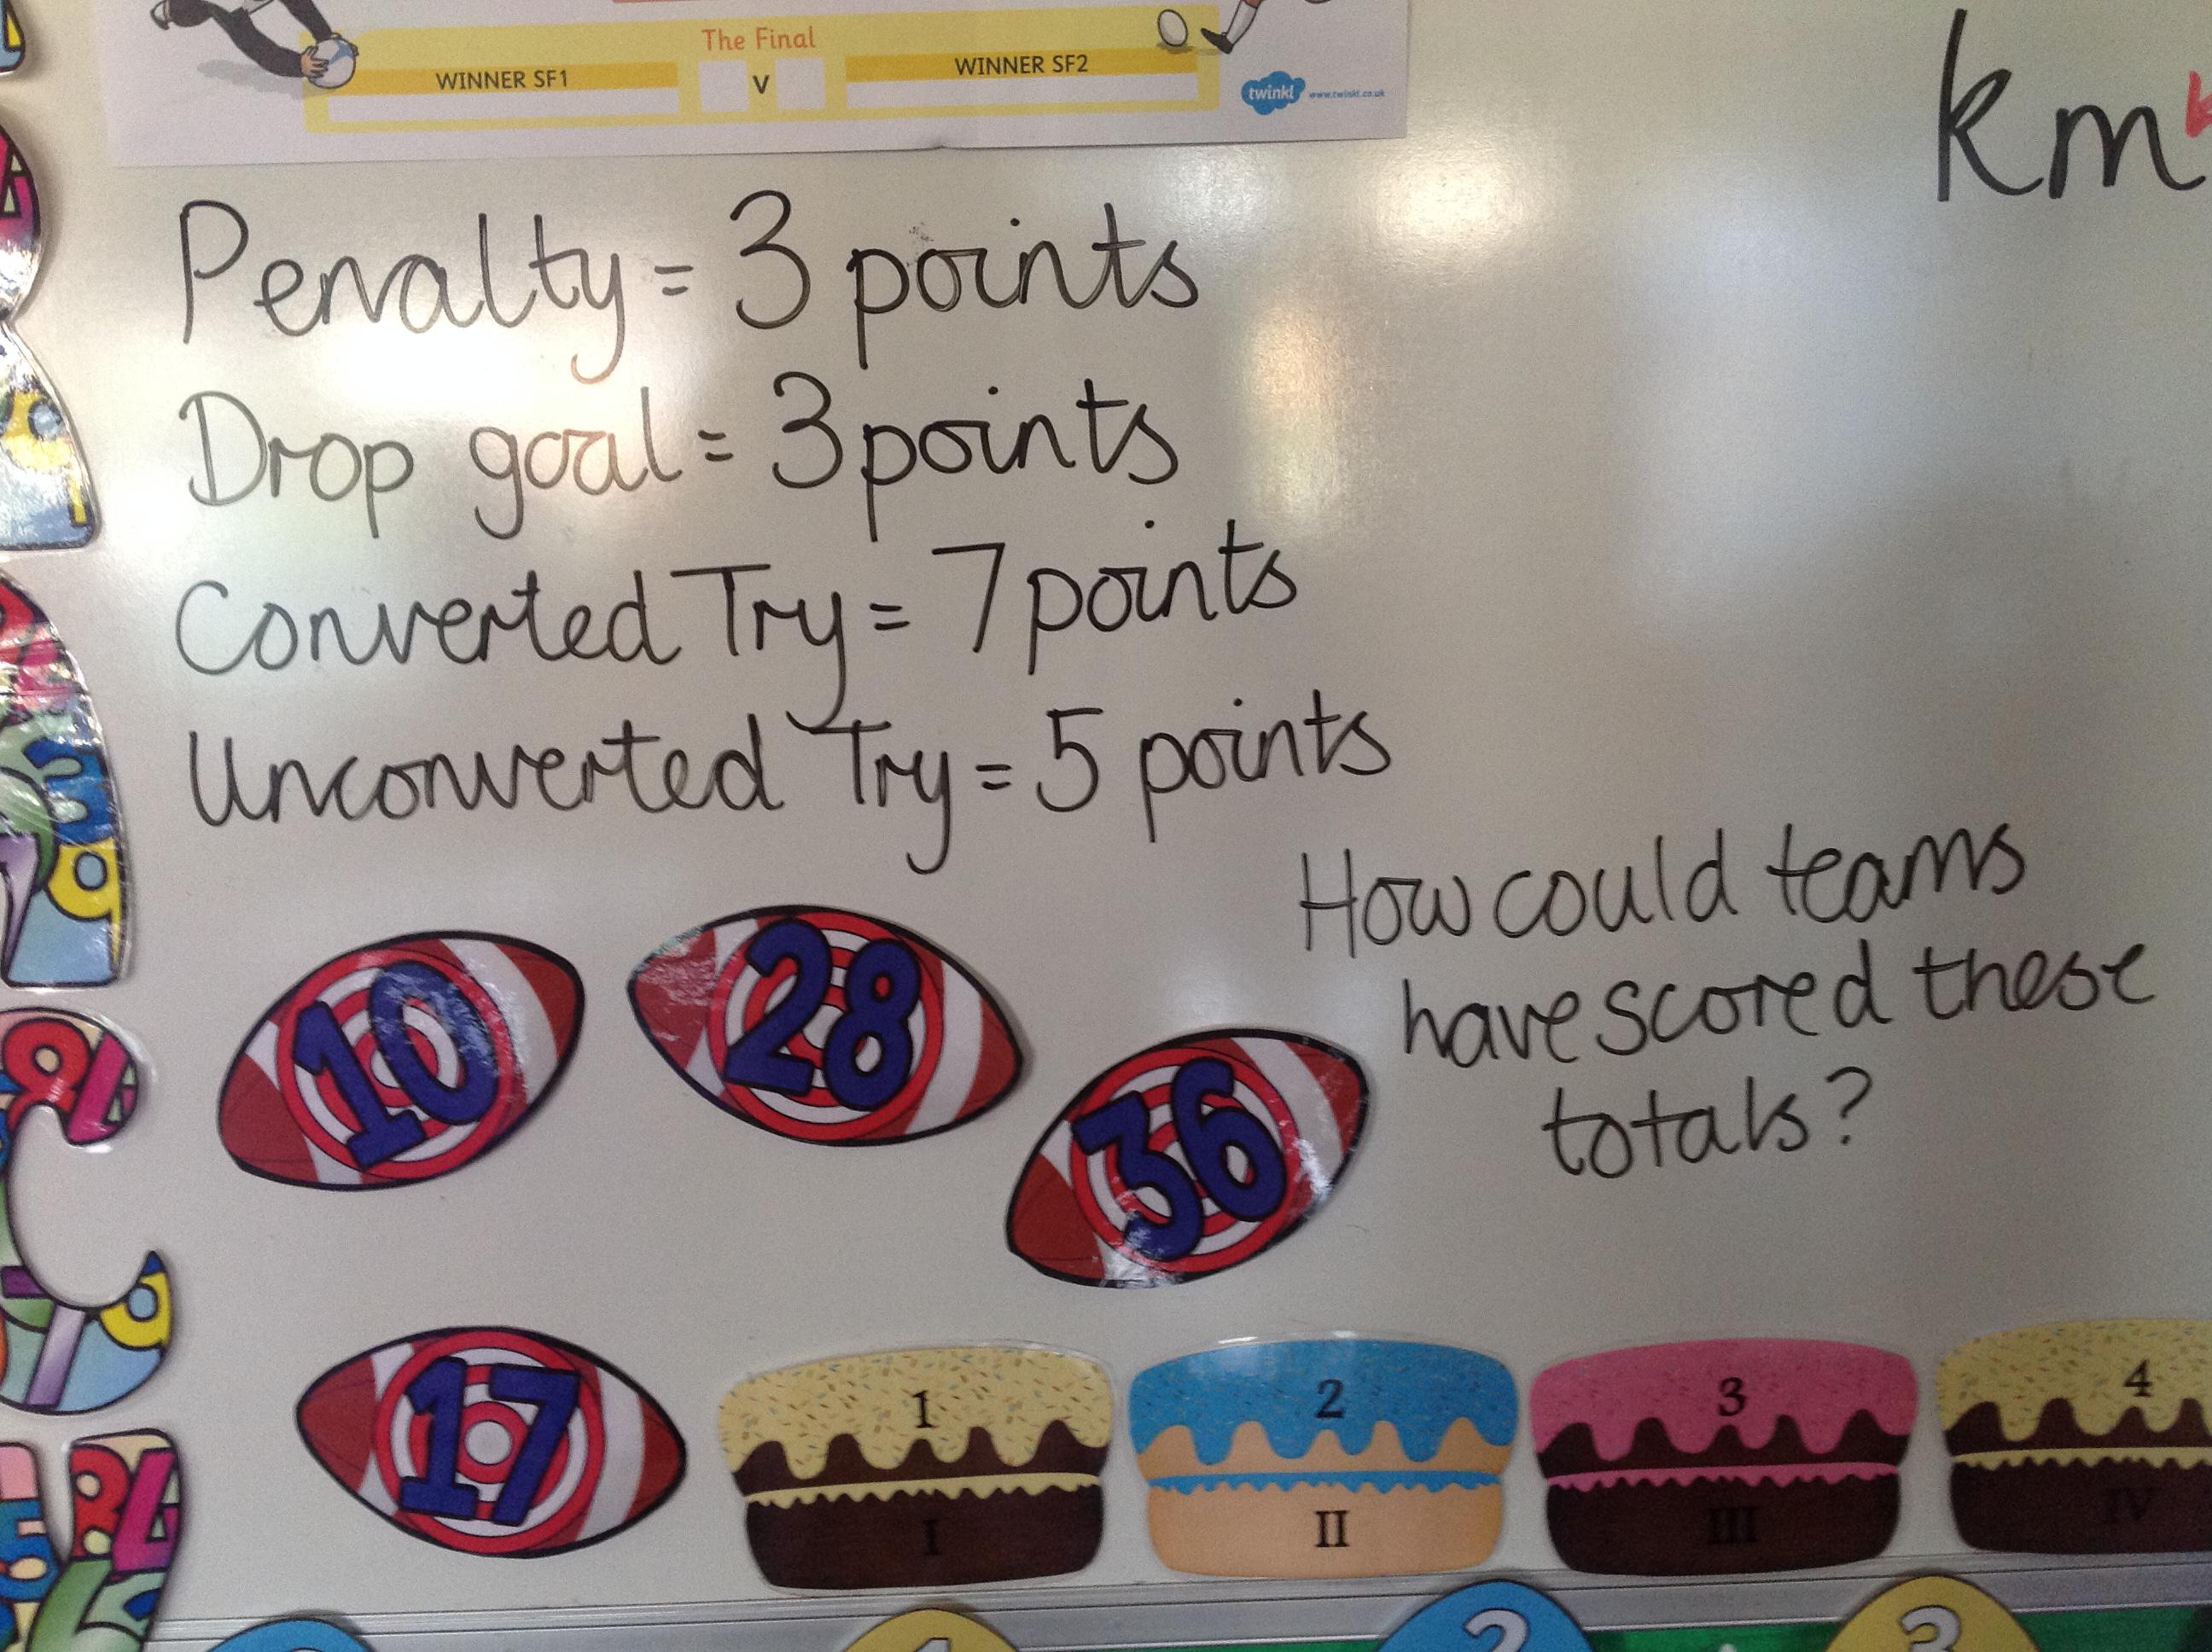 The Final
WINNER SF1 V WINNER SF2
twinkl www.twinkl.co.uk
km
Penalty = 3 points
Drop goal = 3 points
Converted Try = 7 points
Unconverted Try = 5 points
How could teams
have scored these
totals?
10
28
36
17
1
I
2
II
3
III
4
IV
1
2
3